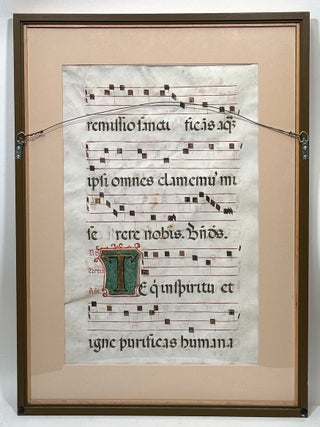 remissio sancti ficās aqȝ
ipsi omnes clamemꝰ mi
se rere nobis. Bn̄os.
TE q̄ in spiritu et
igne purificas humana